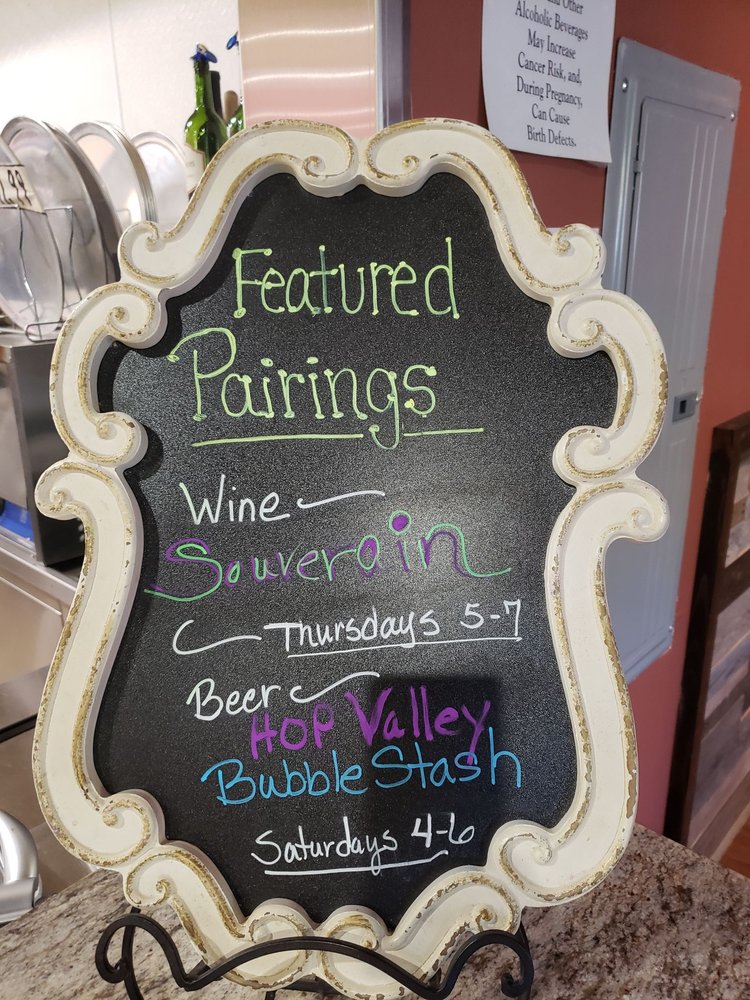 and Other
Alcoholic Beverages
May Increase
Cancer Risk, and,
During Pregnancy,
Can Cause
Birth Defects.
Featured
Pairings
Wine
Souverain
Thursdays 5-7
Beer
Hop Valley
Bubble Stash
Saturdays 4-6